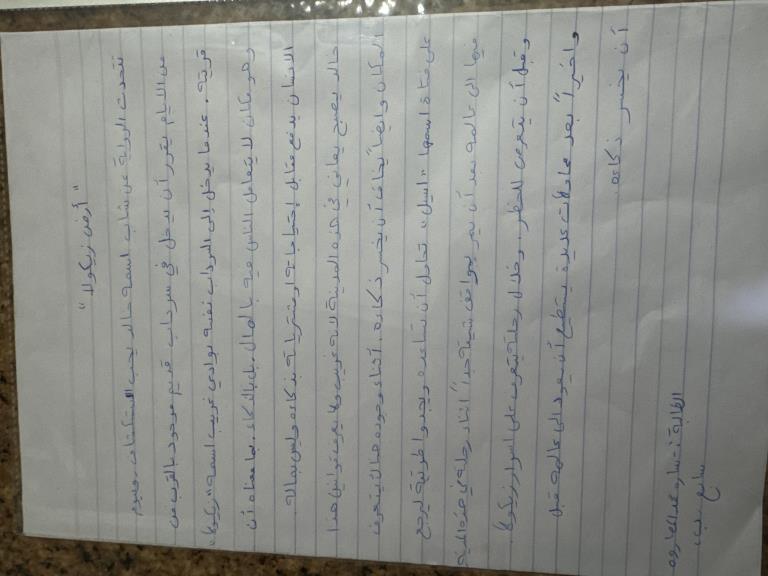 "أرض زيكولا"
تتحدث الرواية عن شاب اسمه خالد يحب الاستكشاف، وفي يوم
من الأيام يقرر أن يدخل في سرداب قديم موجود بالقرب من
قريته. عندما يدخل إلى السرداب نفسه بوادي غريب اسمه "زيكولا"
وهو مكان لا يتعامل الناس فيه بالمال، بل بالذكاء. بما معناه أن
الإنسان يدفع مقابل إحتياجاته ومشترياته بذكاءه وليس بماله
خالد يصبح يعاني في هذه المدينة لانه غريب ولا يعرف قوانين هذا
المكان وايضاً يخاف أن يخسر ذكاءه. أثناء وجوده هناك يتعرف
على فتاة اسمها "اسيل" تحاول أن تساعده ويجدوا طريقة ليرجع
فيها إلى عالمه بعد أن يمر بمواقف سيئة جداً اثناء رحلته في هذه المدينة
وقبل أن يتعرض للخطر، وخلال رحلته يتعرف على اسرار زيكولا.
واخيراً بعد محاولات عديدة يستطيع أن يعود إلى عالمه قبل
أن يخسر ذكاءه.
الطالبة: ساره
سابع